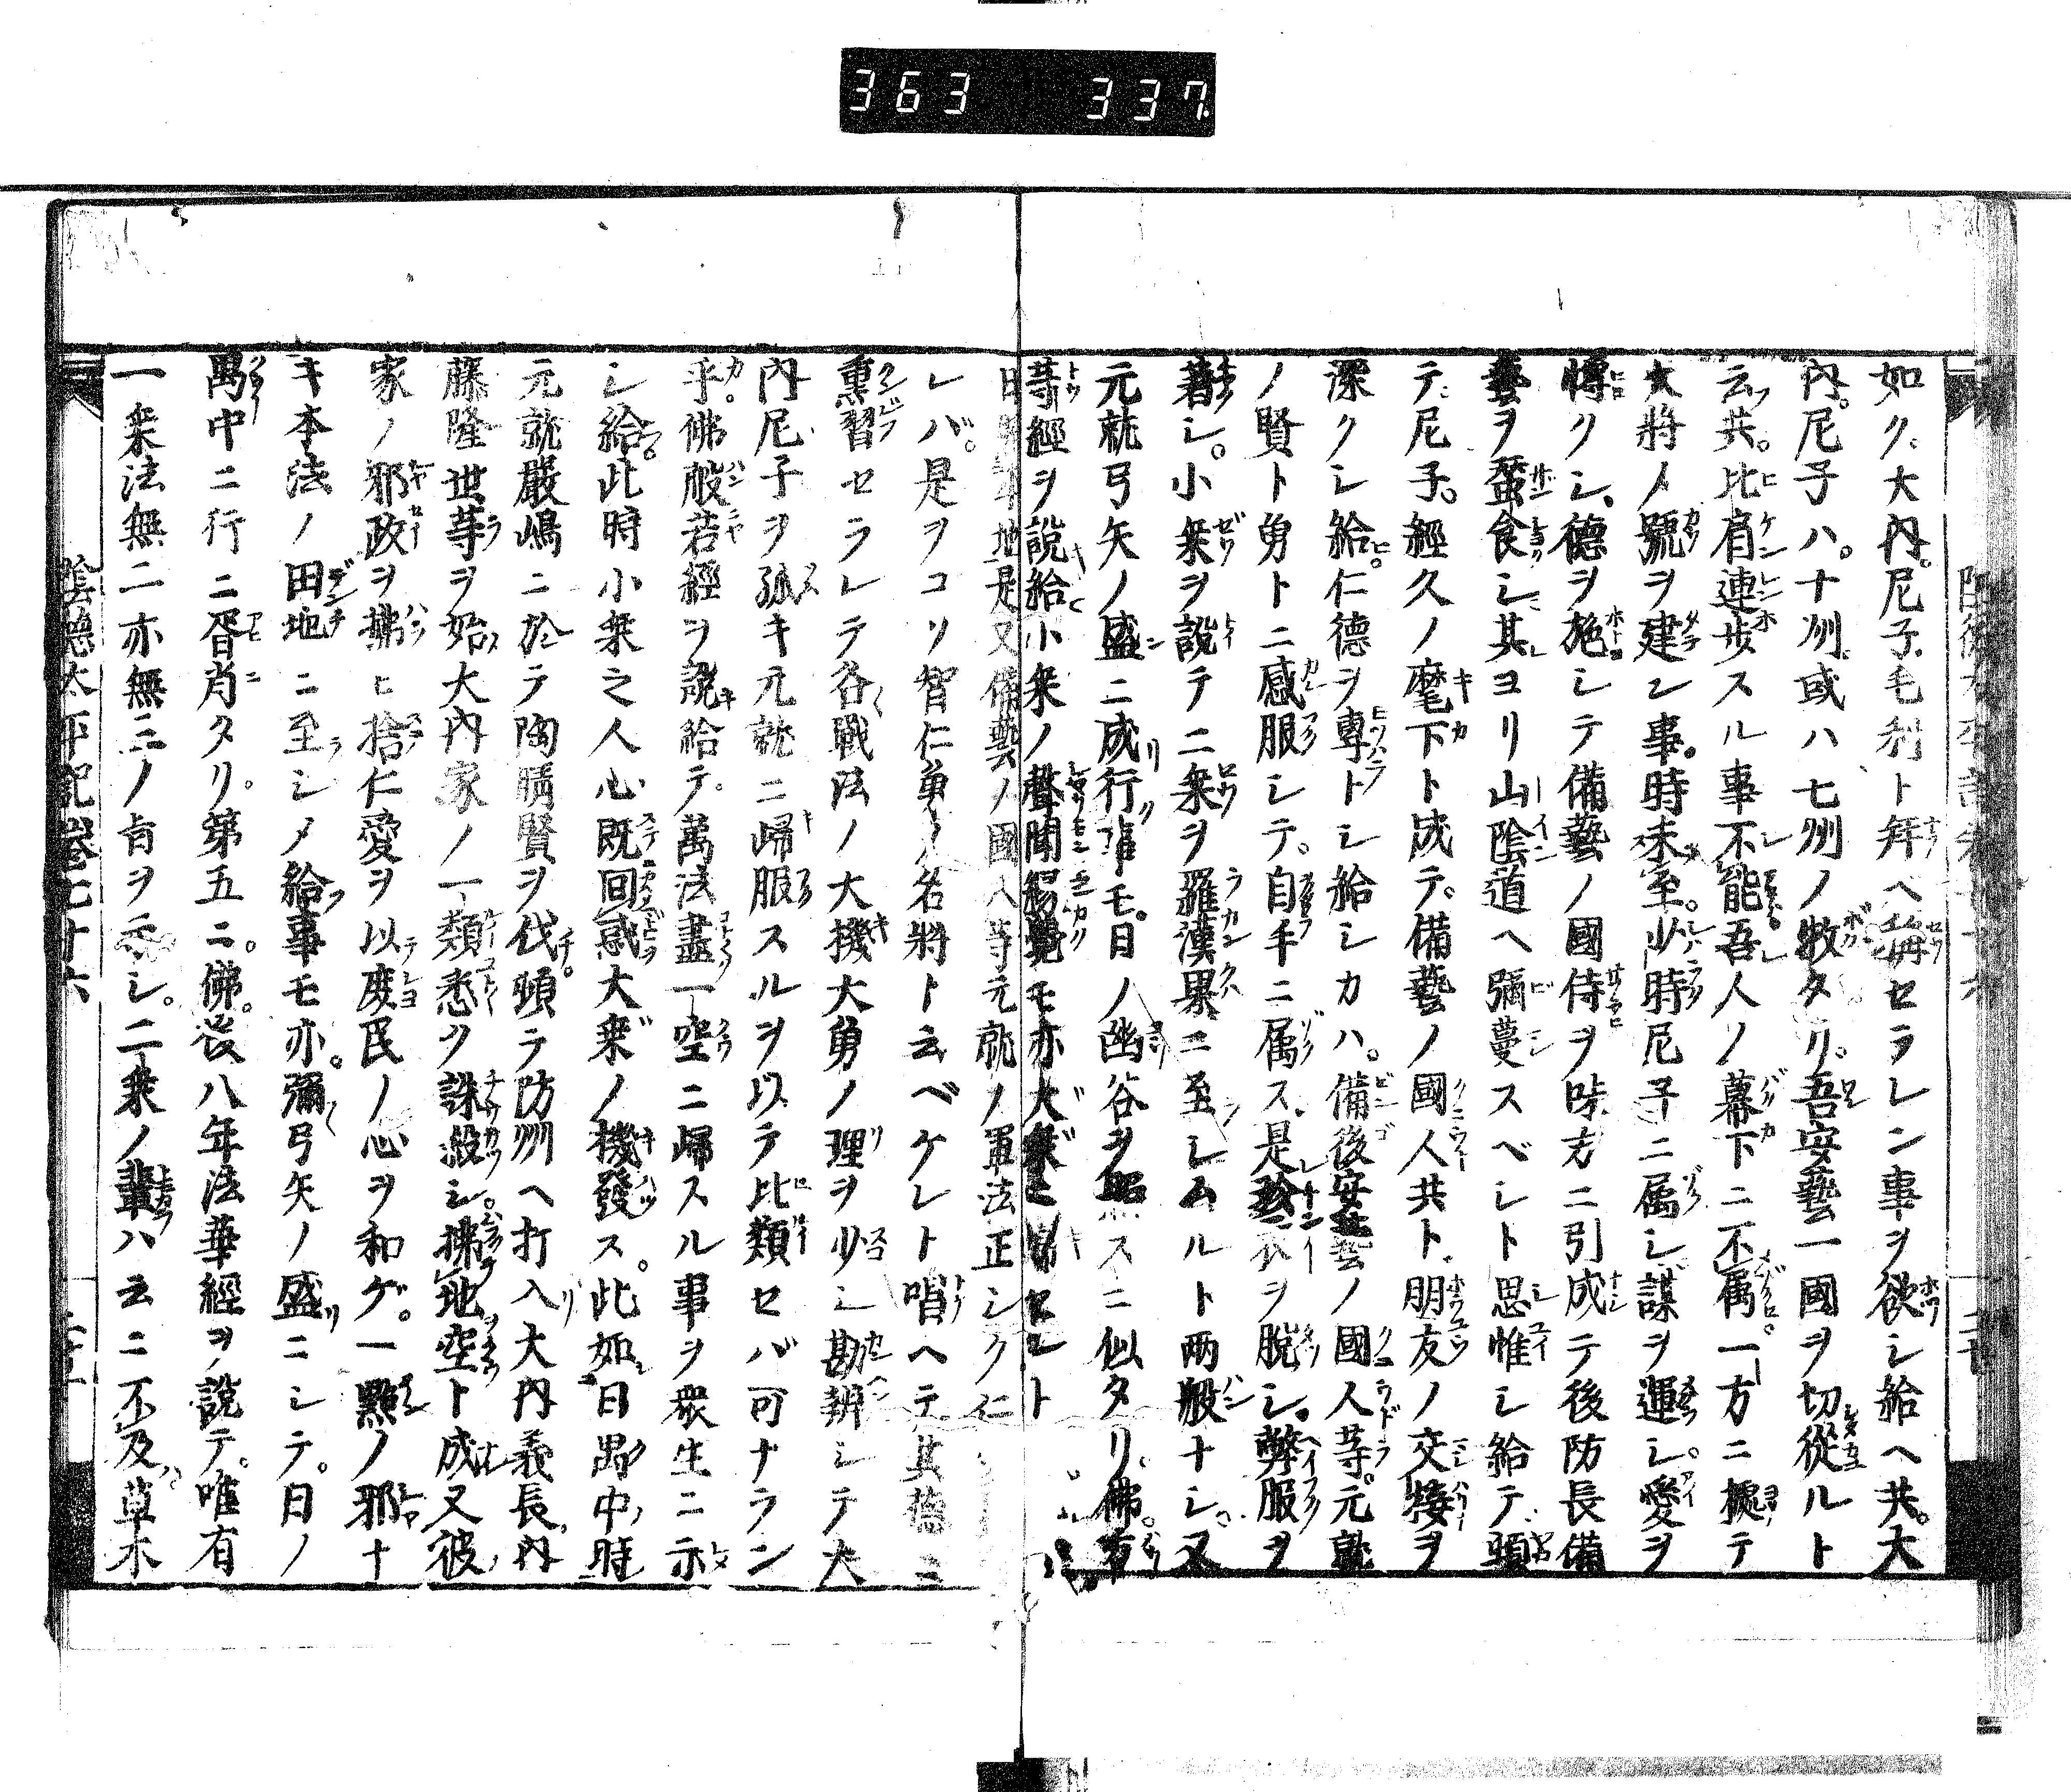 363 337
如ク大内尼子毛利ト竝ベ稱セラレン事ヲ欲シ給ヘ共。大
内。尼子ハ。十州或ハ七州ノ牧タリ。吾安藝一國ヲ切從ルト
云共。比肩連歩スル事不能吾人ノ幕下ニ不属一方ニ據テ
大將ノ號ヲ建ン事。時未至。少時尼子ニ属シ謀ヲ運シ。愛ヲ
博クシ、德ヲ施シテ備藝ノ國侍ヲ味方ニ引成テ後防長備
藝ヲ蚕食シ其ヨリ山陰道ヘ彌蔓スベシト思惟シ給テ頭
テ尼子。經久ノ麾下ト成テ。備藝ノ國人共ト朋友ノ交接ヲ
深クシ給。仁德ヲ專トシ給シカハ。備後安藝ノ國人等。元就
ノ賢ト勇トニ感服シテ。自手ニ属ス。是珍衣ヲ脱シ。弊服ヲ
著シ。小乗ヲ說テ二乗ヲ羅漢果ニ至シムルト両般ナシ。又
元就弓矢ノ盛ニ成行事モ。日ノ幽谷ヲ照スニ似タリ。佛方
等經ヲ說給小乗ノ聲聞縁覺モ亦大乗ニ歸セシト
地是又備藝ノ國人等元就ノ軍法正シク仁
レバ。是ヲコソ智仁勇ノ名將ト云ベケレト唱ヘテ其德ニ
熏習セラレテ谷戰法ノ大機大勇ノ理ヲ少シ勘辨シテ大
内尼子ヲ孤キ元就ニ歸服スルヲ以テ比類セバ可ナラン
乎。佛般若經ヲ說給テ。萬法盡一空ニ歸スル事ヲ衆生ニ示
シ給。此時小乗之人心既回惑大乗ノ機發ス。此如日禺中時
元就嚴嶋ニ於テ陶晴賢ヲ伐。頭テ防州ヘ打入大内義長内
藤隆世等ヲ始大内家ノ一類悉ク誅殺シ。拂地空ト成又彼
家ノ邪政ヲ拂ヒ捨仁愛ヲ以庶民ノ心ヲ和ゲ。一點ノ邪ナ
キ本法ノ田地ニ至シメ給事モ亦。彌弓矢ノ盛ニシテ。日ノ
禺中ニ行ニ胥肖タリ。第五ニ。佛。後八年法華經ヲ說テ。唯有
一乗法無二亦無三ノ旨ヲ示シ。二乗ノ輩ハ云ニ不及草木
陰德太平記卷二十六